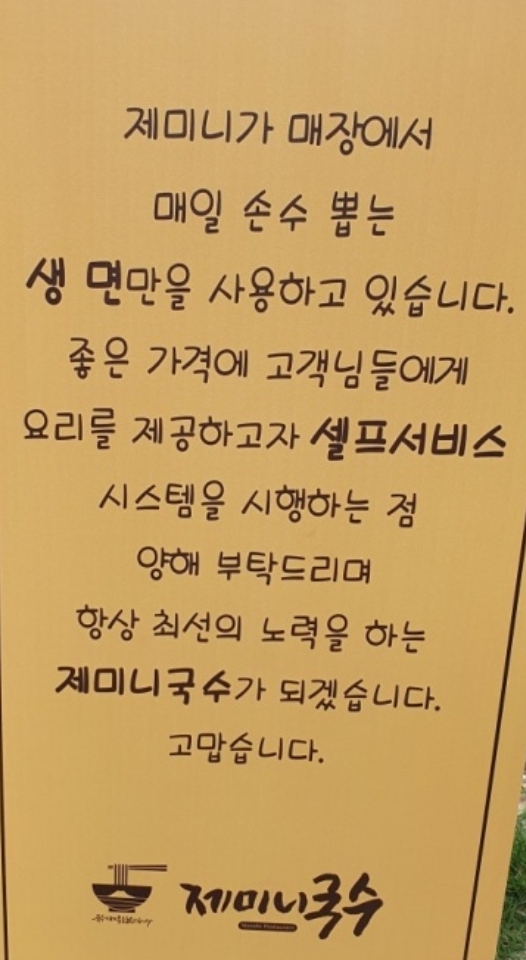 제미니가 매장에서
매일 손수 뽑는
생 면만을 사용하고 있습니다.
좋은 가격에 고객님들에게
요리를 제공하고자 셀프서비스
시스템을 시행하는 점
양해 부탁드리며
항상 최선의 노력을 하는
제미니국수가 되겠습니다.
고맙습니다.
제미니국수